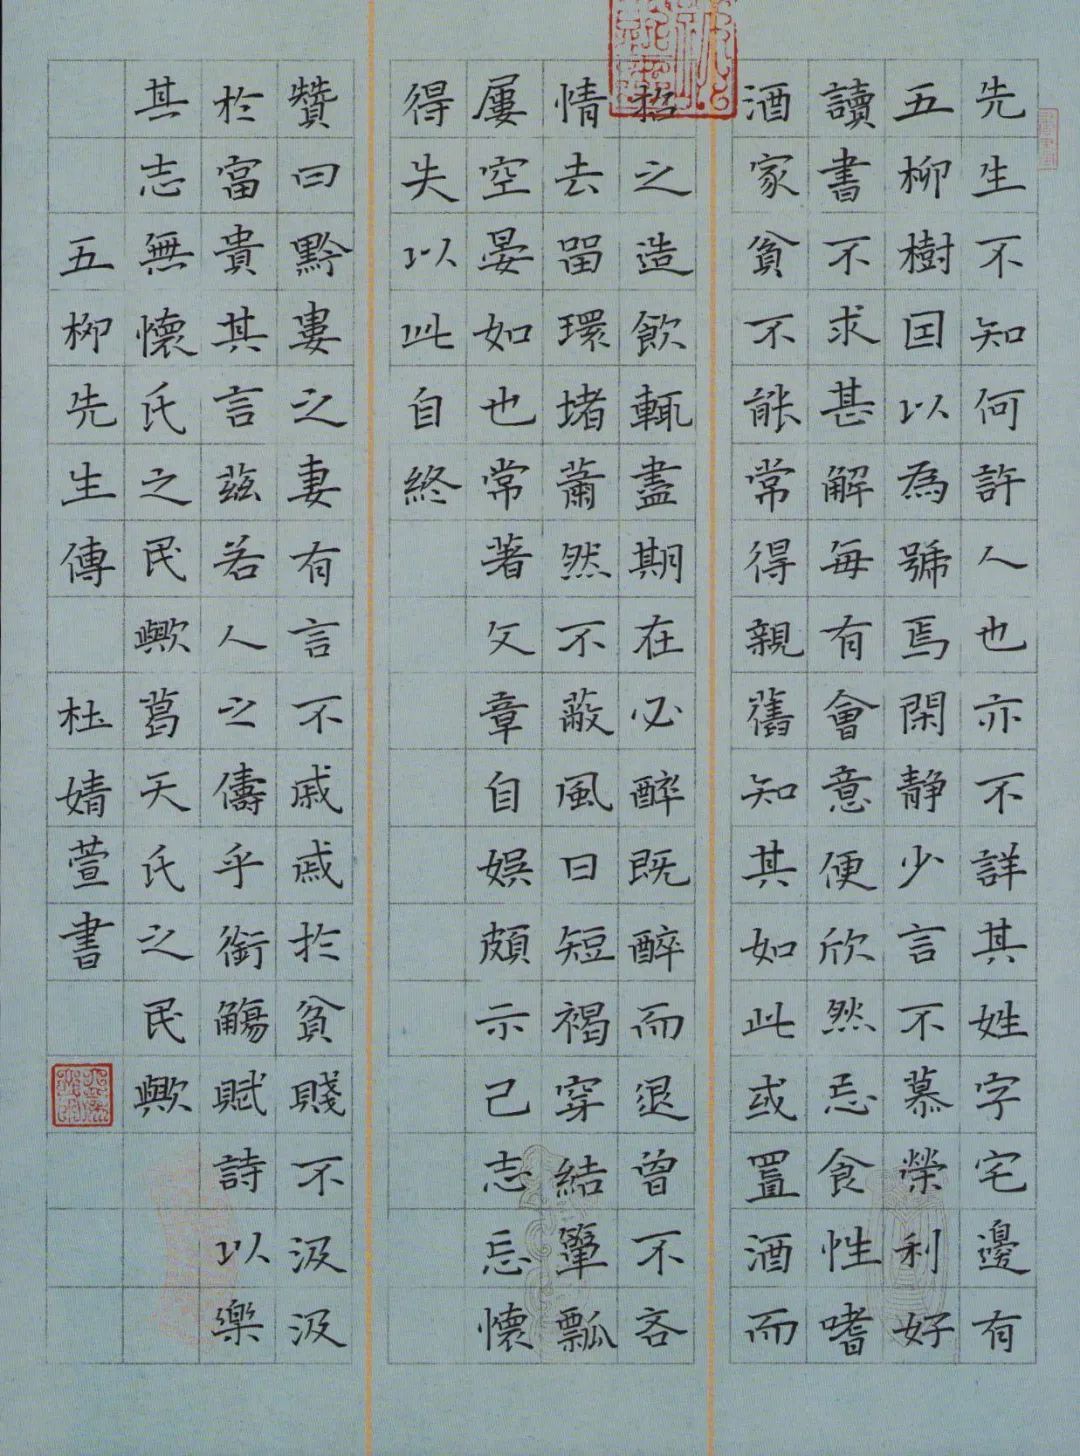 先生不知何許人也亦不詳其姓字宅邊有
五柳樹囙以為號焉閑静少言不慕榮利好
讀書不求甚解每有會意便欣然忘食性嗜
酒家貧不能常得親舊知其如此或置酒而
招之造飲輒盡期在必醉既醉而退曾不吝
情去留環堵蕭然不蔽風日短褐穿結簞瓢
屢空晏如也常著文章自娛頗示己志忘懷
得失以此自終
贊曰黔婁之妻有言不戚戚於貧賤不汲汲
於富貴其言茲若人之儔乎銜觴賦詩以樂
其志無懷氏之民歟葛天氏之民歟
五柳先生傳 杜婧萱書